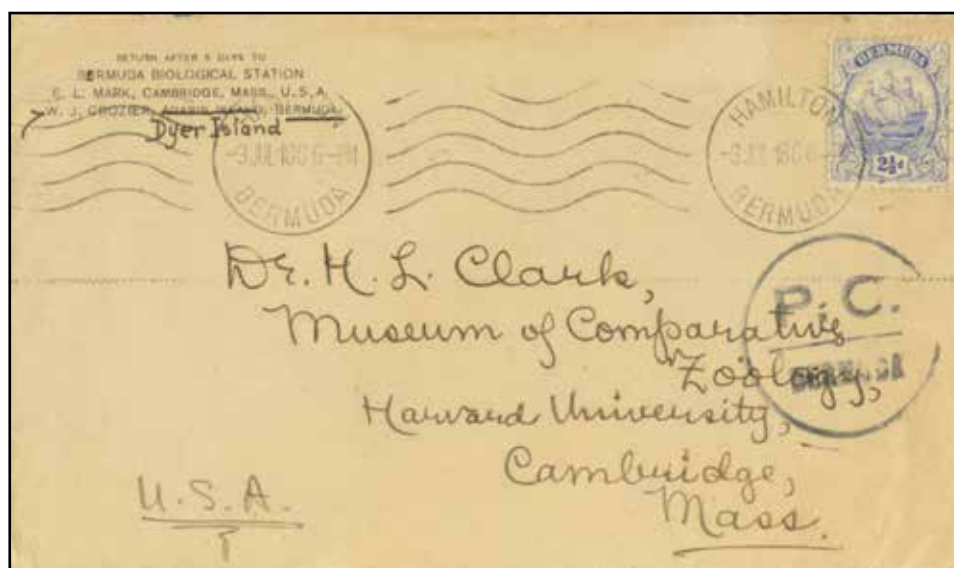 RETURN AFTER 5 DAYS TO
BERMUDA BIOLOGICAL STATION
E. L. MARK, CAMBRIDGE, MASS., U.S.A.
W. J. CROZIER, AGARS ISLAND, BERMUDA.
Dyer Island
HAMILTON
-3 JUL 18 6-PM
BERMUDA
HAMILTON
-3 JUL 18 6-
BERMUDA
BERMUDA
2½d
Dr. H. L. Clark,
Museum of Comparative
Zoölogy,
Harvard University,
Cambridge,
Mass.
U.S.A.
P. C.
BERMUDA